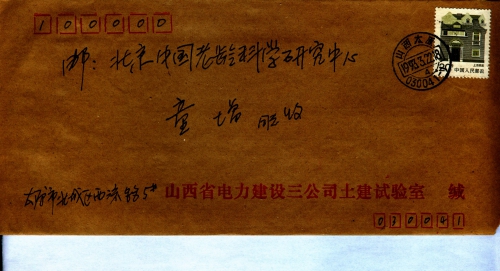 100000
邮：北京中国老龄科学研究中心
童增 收
山西太原
1993.3.22.18
030041
中国人民邮政
太原市北城区西涧路5#
山西省电力建设三公司土建试验室 缄
030041